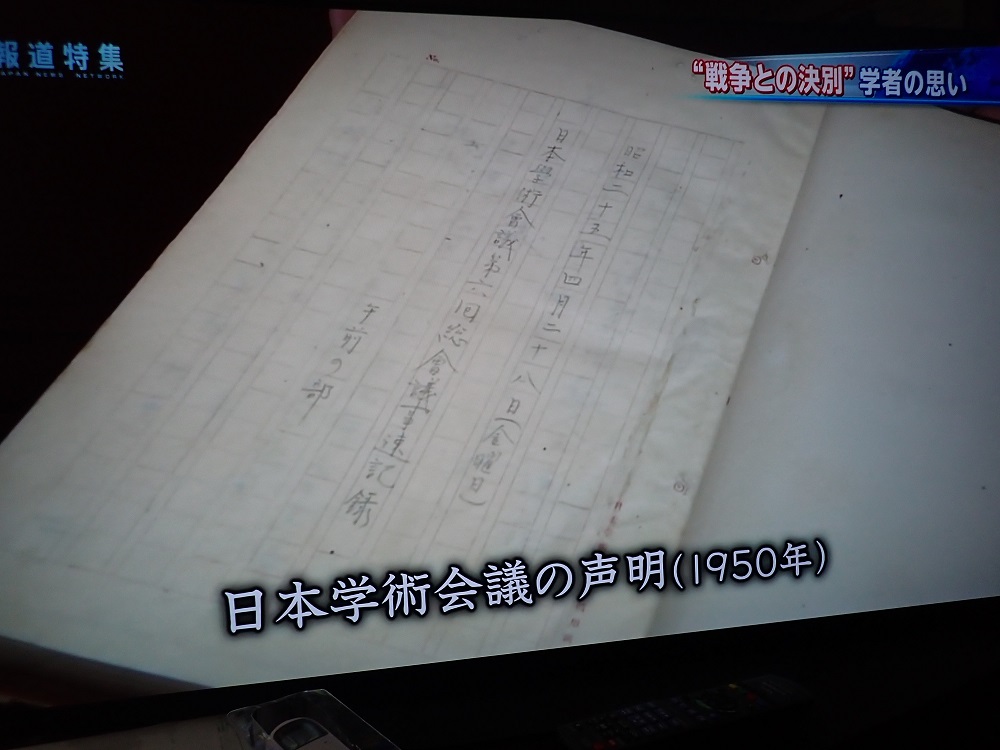 報道特集
JAPAN NEWS NETWORK
“戦争との決別”学者の思い
No.
昭和二十五年四月二十八日(金曜日)
日本學術會議第六回総會議事速記録
午前の部
日本学術会議の声明(1950年)